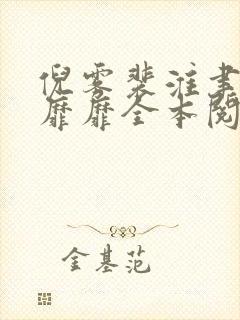 倪雾裴淮聿
靡靡全本阅
金基范